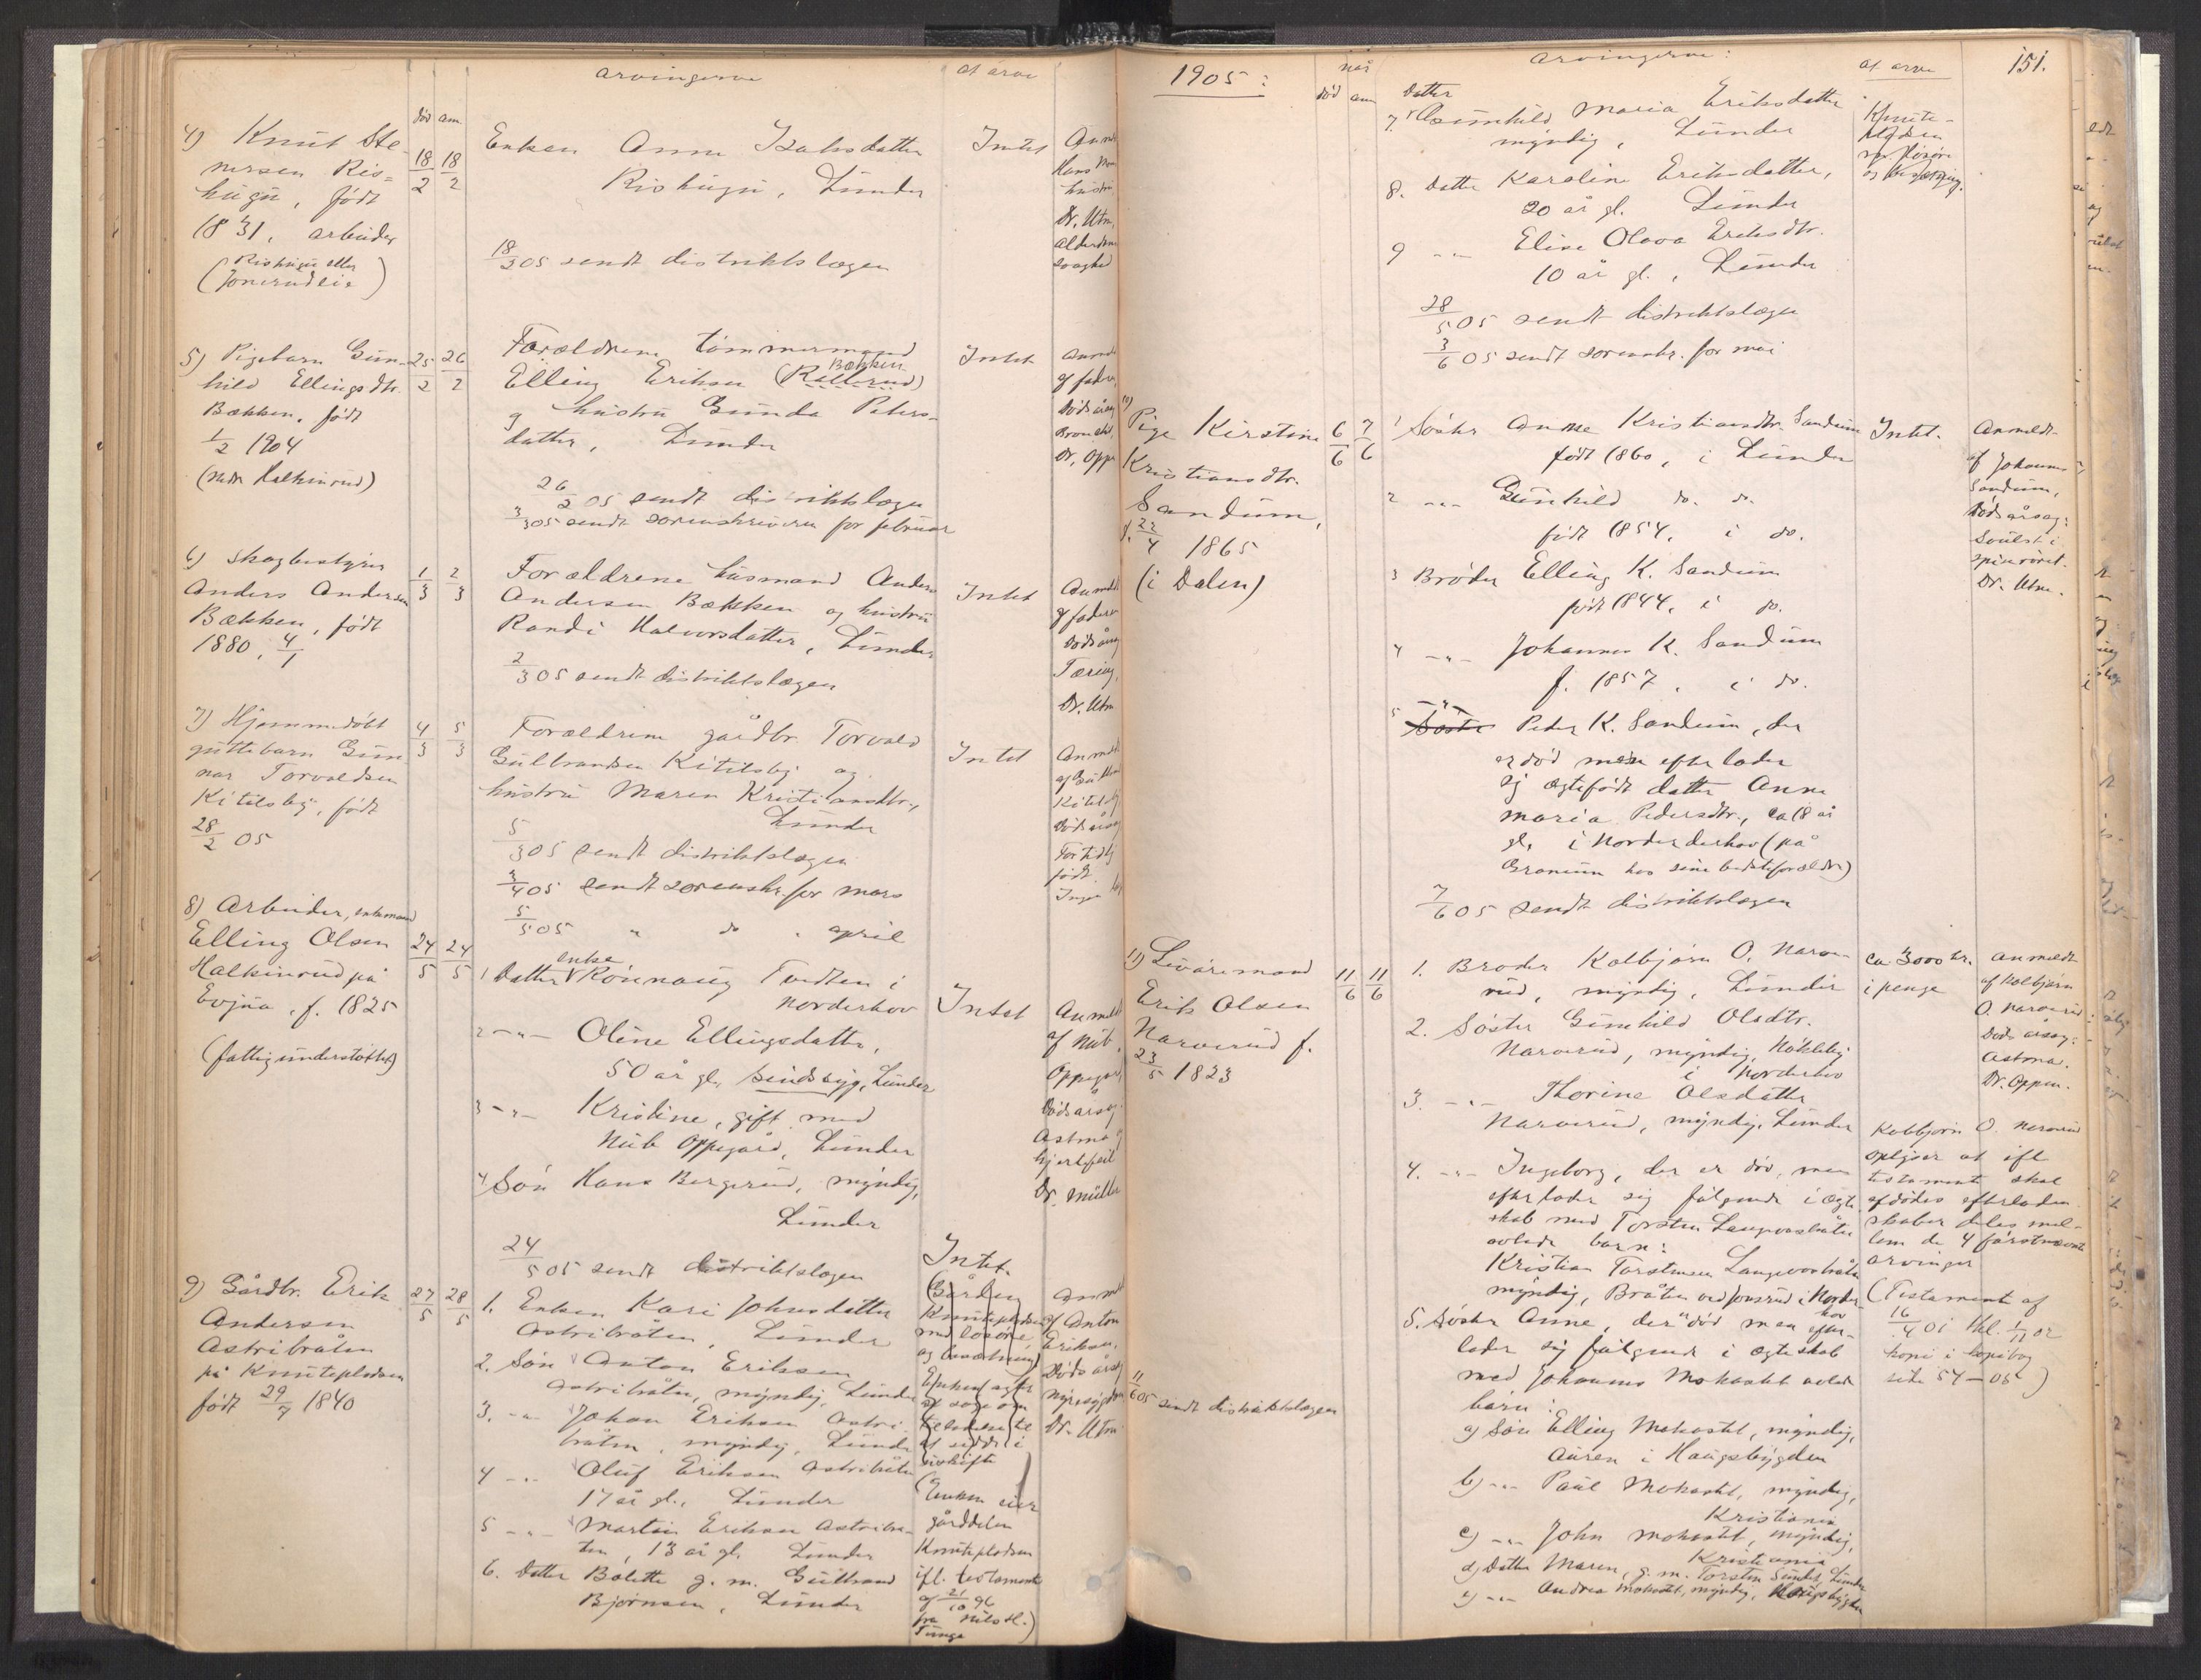 arvingerne
at arve
død am.
4) Knut Ste-
nersen Ris-
hugu, født
1831, arbeider
(Rishugu eller
Jonsrudeie)
18/2 18/2
Enken Anne Isaksdatter
Rishugu, Lunder
18/2 05 sendt distriktslægen
Intet
Dr. Utne,
alderdoms
svaghed
5) Pigebarn Gun-
hild Ellingsdtr.
Bækken, født
1/2 1904
25/2 26/2
Forældrene tømmermand
Bækken
Elling Eriksen (Rallerud)
og hustru Gunda Peters-
datter, Lunder
26/2 05 sendt distriktslægen
3/3 05 sendt sorenskriveren for februar
Intet
Anmeldt
af fader
Dødsårsag
Dr. Oppe
6) Skogbestyrer
Anders Andersen
Bækken, født
1880, 4/1
1/3 2/3
Forældrene husmand Anders
Andersen Bækken og hustru
Randi Halvorsdatter, Lunder
2/3 05 sendt distriktslægen
Intet
Anmeldt
af faderen
Dødsårsag
Tæring,
Dr. Utne
7) Hjemmedøbt
guttebarn Gun
nar Torvaldsen
Kitilsby, født
28/2 05
4/3 5/3
Forældrene gårdbr. Torvald
Gulbrandsen Kitilsby og
hustru Maren Kristiansdtr.,
Lunder
5/3 05 sendt distriktslægen
3/4 05 sendt sorenskr. for mars
5/5 05 " do " april
Intet
Anmeldt
Kitilsby
Dødsårsag
For tidlig
født.
Ingen
8) Arbeider, enkemand
Elling Olsen
Halkinrud på
Evjua, f. 1825
(fattigunderstøttet)
24/5 24/5
enke
1 Datter Rønnaug Tvedten i
Norderhov
2 -"- Oline Ellingsdatter,
50 år gl. sindssyg, Lunder
3 -"- Kristine, gift med
Nub Oppegård, Lunder
4 Søn Hans Bergerud, myndig,
Lunder
24/5 05 sendt distriktslægen
Intet
Anmeldt
af Nub
Oppegård
Dødsårsag
Astma og
hjertefeil
Dr. Müller
9) Gårdbr. Erik
Andersen
Astribråten
på Knutepladsen
født 29/7 1840
27/5 28/5
1. Enken Kari Johnsdatter
Astribråten, Lunder
2. Søn Anton Eriksen
Astribråten, myndig, Lunder
3. -"- Johan Eriksen Astri-
bråten, myndig, Lunder
4 -"- Oluf Eriksen Astribråten
17 år gl., Lunder
5 -"- Martin Eriksen Astribrå-
ten, 13 år gl. Lunder
6. Datter Bolette g. m. Gulbrand
Bjørnsen, Lunder
Intet.
(Gården
Knutepladsen
med løsøre
og besætning)
(Enken eier
gårddelen
Knutepladsen
ifl. testamente
af 21/10 96
fra Nils H.
Tunge)
Anmeldt
af Anton
Eriksen,
Dødsårsag
nyresygdom
Dr. Utne
1905:
når
død am
arvingerne:
at arve
151.
Datter
7. Gunhild Maria Eriksdatter
myndig, Lunder
8. Datter Karoline Eriksdatter,
20 år gl. Lunder
9 -"- Elise Olava Eriksdtr.
10 år gl., Lunder
28/5 05 sendt distriktslægen
3/6 05 sendt sorenskr. for mai
Knute-
pladsen
m. løsøre
og besætning.
10)
Pige Kirstine
Kristiansdtr.
Sandum,
f. 22/4 1865
(i Dalen)
6/6 7/6
1 Søster Anne Kristiansdtr. Sandum
født 1860, i Lunder
2 -"- Gunhild do. do.
født 1854, i do.
3 Broder Elling K. Sandum
født 1844, i do.
4 -"- Johannes K. Sandum
f. 1857, i do.
5 -"- Søster Peder K. Sandum, der
er død men efterlader
sig ægtefødt datter Anne
Maria Pedersdtr., ca 18 år
gl. i Norderhov (på
Granum hos sine bedsteforældre)
7/6 05 sendt distriktslægen
Intet.
Anmeldt
af Johannes
Sandum,
Dødsårsag:
Svulst i
spiserøret.
Dr. Utne.
11) Livøremand
Erik Olsen
Narverud f.
23/5 1823
11/6 11/6
11/6 05 sendt distriktslægen
1. Broder Kolbjørn O. Narve-
rud, myndig, Lunder
2. Søster Gunhild Olsdtr.
Narverud, myndig, Hokleby
i Norderhov
3. -"- Thorine Olsdatter
Narverud, myndig, Lunder
4. -"- Ingeborg, der er død, men
efterlader sig følgende i ægte
skab med Torsten Langvasbråten
avlede barn:
Kristian Torstensen Langvasbråten
myndig, Bråten ved Jonsrud i Norder-
hov
5. Søster Anne, der er død men efter-
lader sig følgende i ægteskab
med Johannes Mokastet avlede
børn:
a) Søn Elling Mokastet, myndig,
Auren i Haugsbygden
b) -"- Paul Mokastet, myndig,
Kristiania
c) -"- John Mokastet, myndig,
Kristiania
d) Datter Maren, g. m. Torsten Sundet, Lunder
e) -"- Andrea Mokastet, myndig, Haugsbygden
ca 3000 kr.
i penge
Anmeldt
af Kolbjørn
O. Narverud
Dødsårsag:
Astma.
Dr. Oppen.
Kolbjørn O. Narverud
oplyser at ifl
testament skal
afdødes efterladen
skaber deles mel-
lem de 4 førstnævnte
arvinger
(Testament af
16/4 01 thl. 1/11 02
kopi i kopibog
side 54-05)